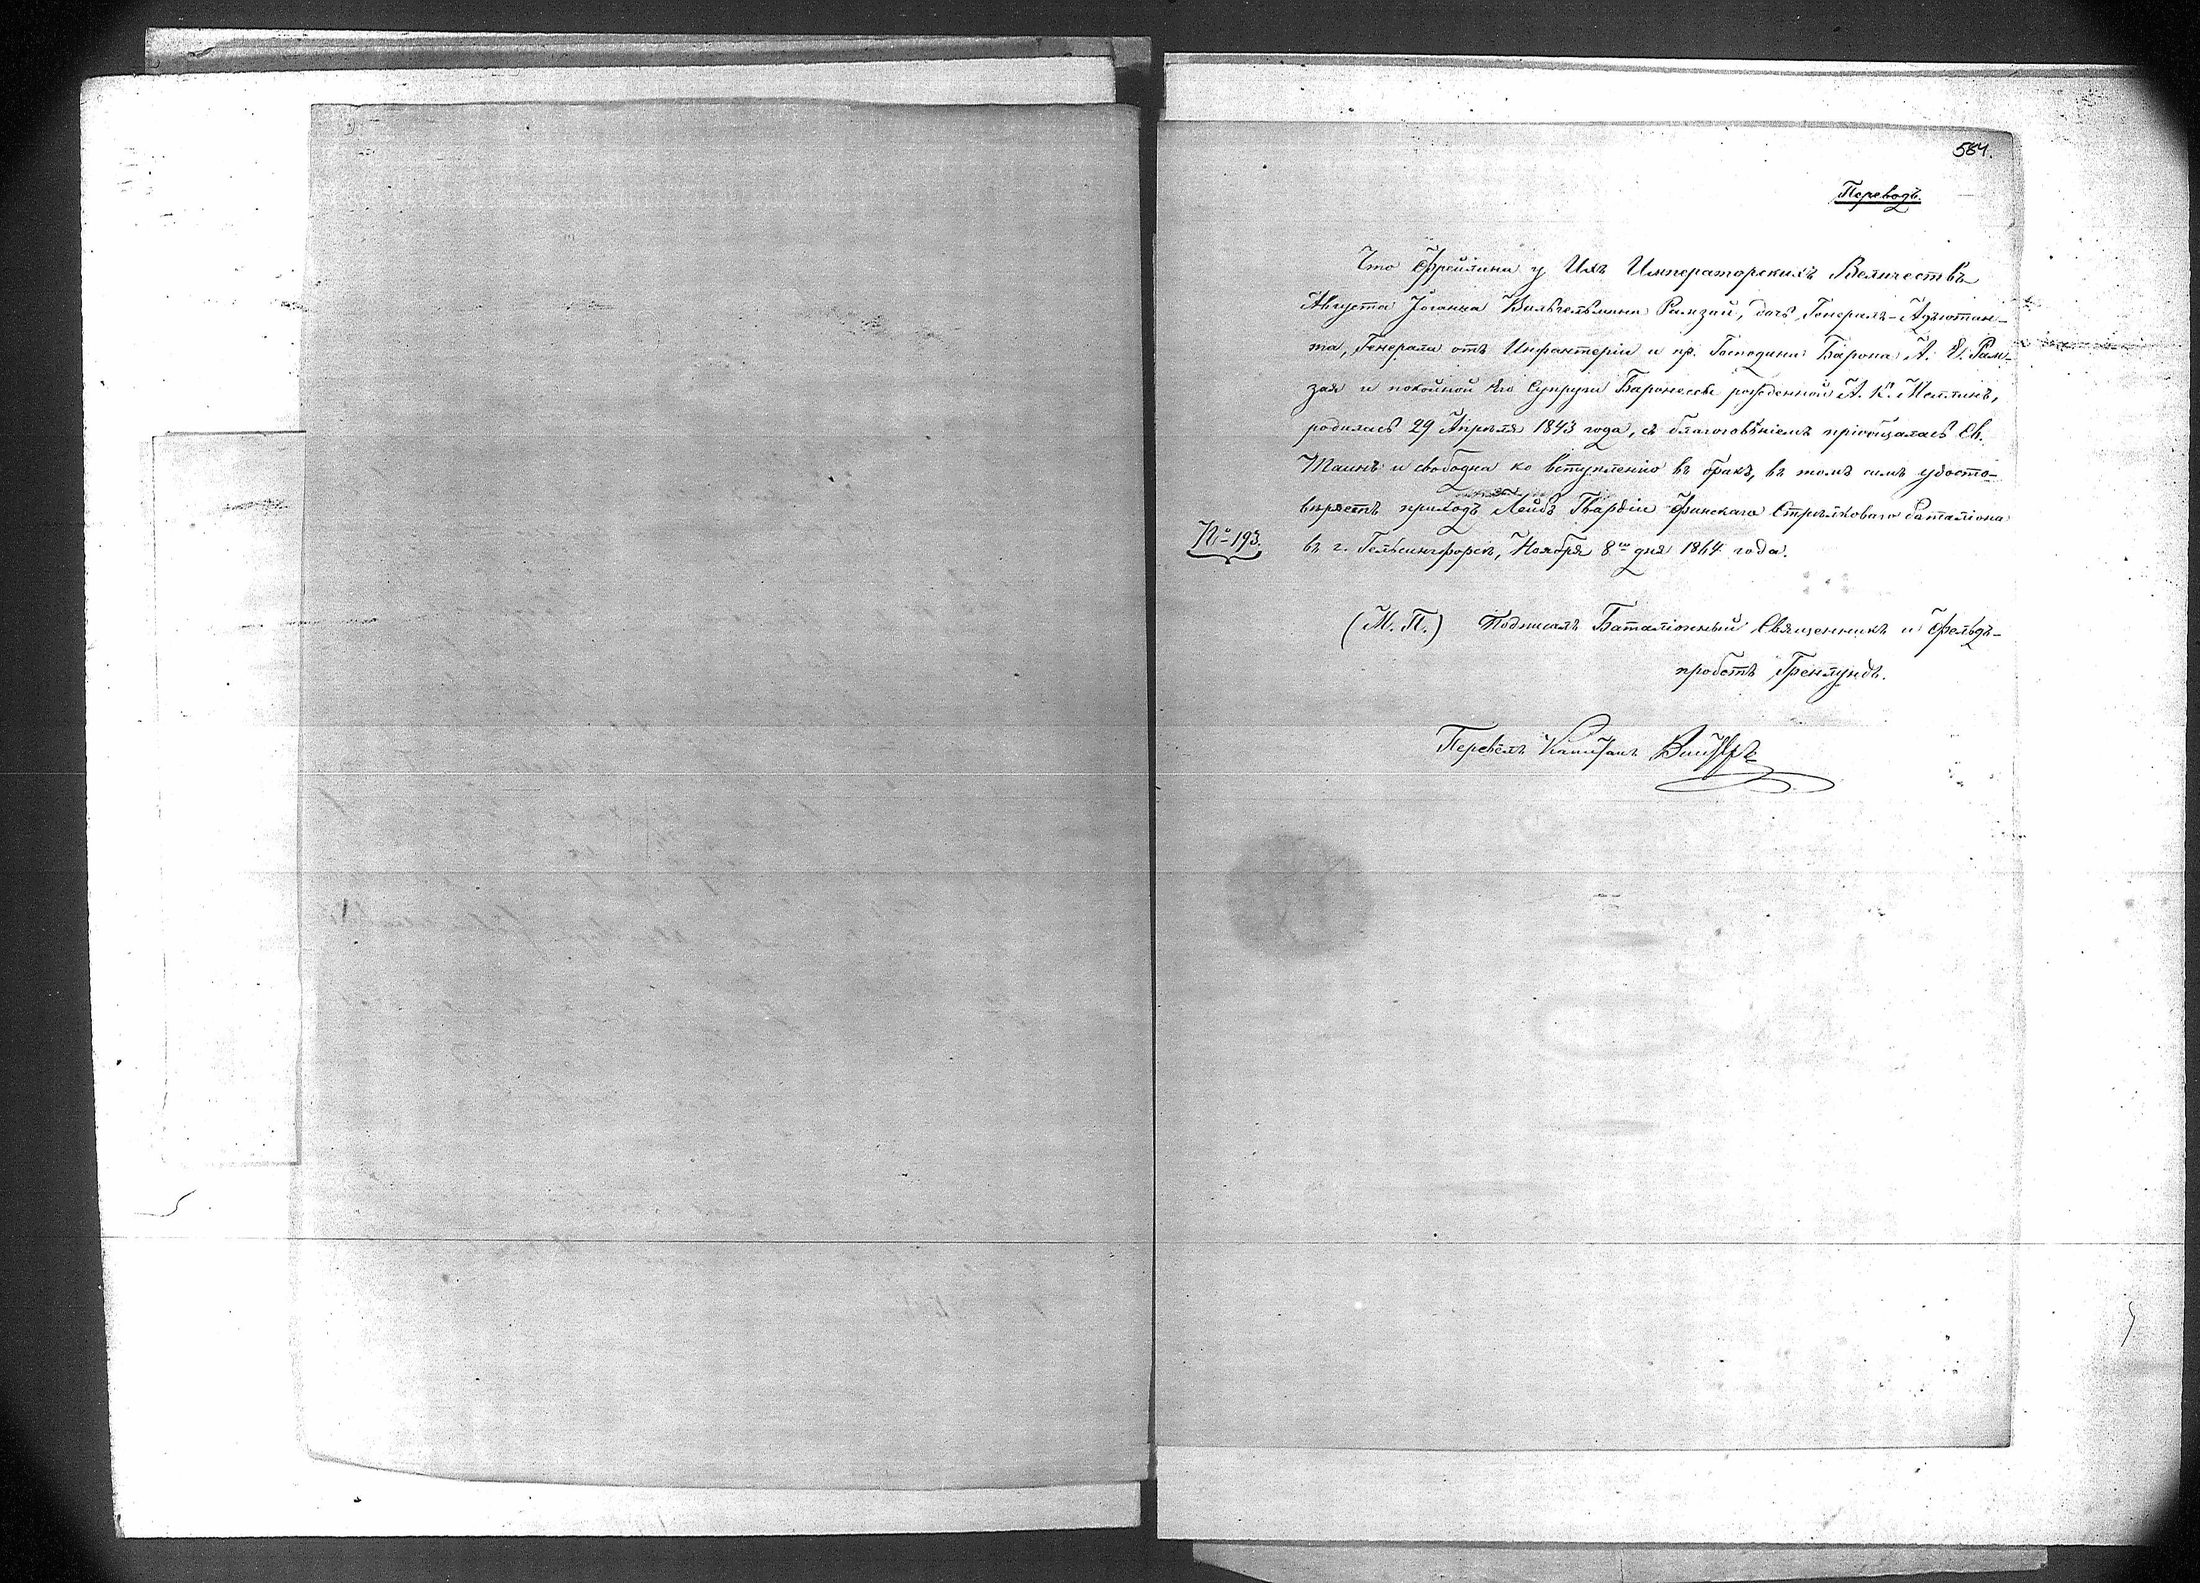 564.
Переводъ.
Что Фрейлина у Ихъ Императорскихъ Величествъ
Августа Іоганна Вильгельмина Рамзай, дочь Генералъ-Адъютан-
та, Генерала отъ Инфантеріи и пр. Господина Барона А. Е. Рам-
зая и покойной Его Супруги Баронессы рожденной А. К.
родилась 29 Апрѣля 1843 года, съ благоговѣніемъ пріобщалась Св.
Таинъ и свободна ко вступленію въ бракъ, въ томъ симъ удосто-
вѣряетъ приходъ Лейбъ Гвардіи Финскаго Стрѣлковаго баталіона
№ 193.
въ г. Гельсингфорсѣ, Ноября 8го дня 1864 года.
(М. П.) Подписалъ Баталіонный Священникъ и Фельдъ-
пробстъ Гренлундъ.
Перевёлъ Капитанъ